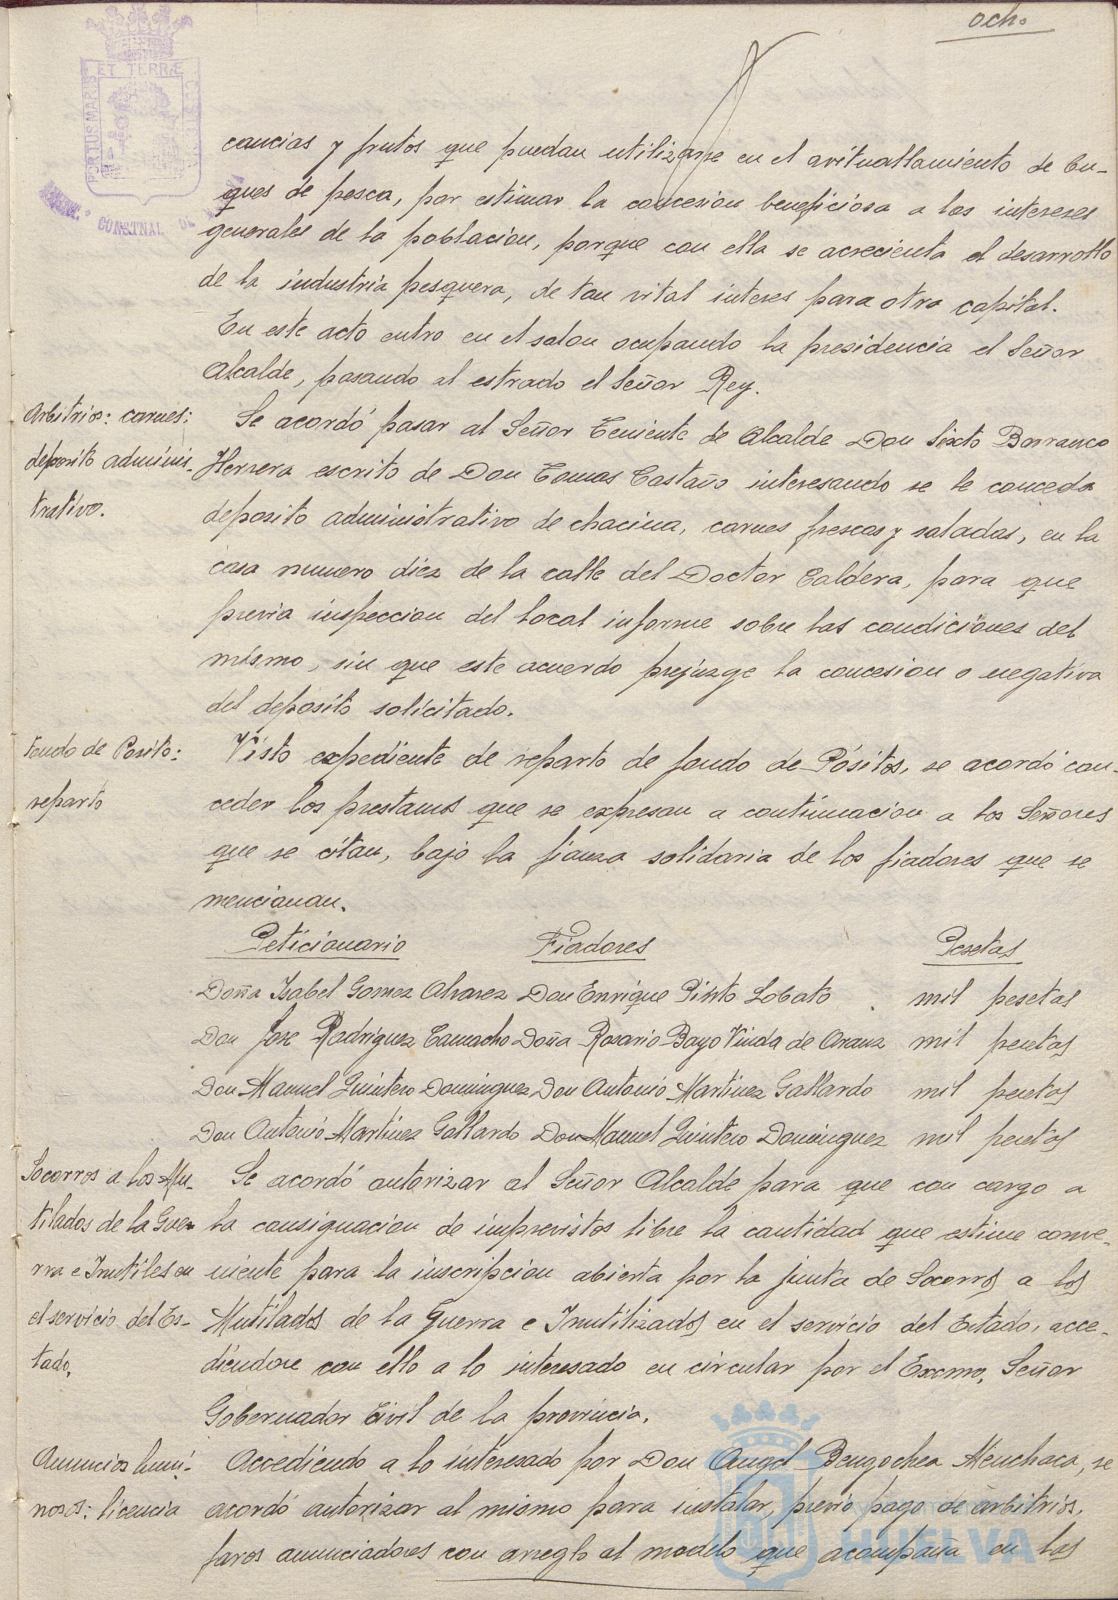 ocho
PORTUS MARIS ET TERRÆ CUSTODIA
CONSTNAL DE
cancias y frutos que puedan utilizarse en el avituallamiento de bu-
ques de pesca, por estimar la concesion beneficiosa a los intereses
generales de la poblacion, porque con ella se acrecienta el desarrollo
de la industria pesquera, de tan vital interes para otra capital.
En este acto entro en el salon ocupando la presidencia el Señor
Alcalde, pasando al estrado el Señor Rey.
Arbitrios: carnes:
deposito adminis-
trativo.
Se acordó pasar al Señor Teniente de Alcalde Don Sixto Barranco
Herrera escrito de Don Tomas Castaño interesando se le conceda
deposito administrativo de chacina, carnes frescas y saladas, en la
casa numero diez de la calle del Doctor Caldera, para que
previa inspeccion del local informe sobre las condiciones del
mismo, sin que este acuerdo prejuzge la concesion o negativa
del deposito solicitado.
Fondo de Posito:
reparto
Visto expediente de reparto de fondo de Pósitos, se acordó con-
ceder los prestamos que se expresan a continuacion a los Señores
que se citan, bajo la fianza solidaria de los fiadores que se
mencionan.
Peticionario Fiadores Pesetas
Doña Isabel Gomez Alvarez Don Enrique Pinto Lobato mil pesetas
Don Jose Rodriguez Camacho Doña Rosario Bayo Viuda de Aranz mil pesetas
Don Manuel Quintero Dominguez Don Antonio Martinez Gallardo mil pesetas
Don Antonio Martinez Gallardo Don Manuel Quintero Dominguez mil pesetas
Socorros a los Mu-
tilados de la Gue-
rra e Inutiles en
el servicio del Es-
tado.
Se acordó autorizar al Señor Alcalde para que con cargo a
la consignacion de imprevistos libre la cantidad que estime conve-
niente para la inscripcion abierta por la Junta de Socorros a los
Mutilados de la Guerra e Inutilizados en el servicio del Estado, acce-
diendose con ello a lo interesado en circular por el Excmo. Señor
Gobernador Civil de la provincia.
Anuncios lumi-
nosos: licencia
Accediendo a lo interesado por Don Angel Bengochea Menchaca, se
acordó autorizar al mismo para instalar, previo pago de arbitrios,
faros anunciadores con arreglo al modelo que acompaña en las
HUELVA